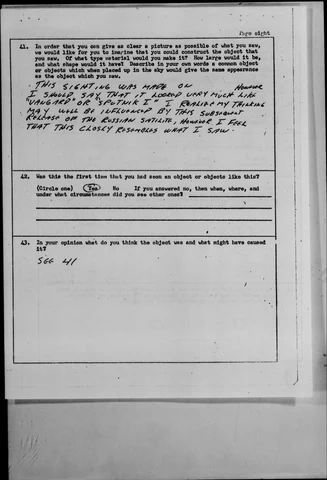 Page eight
41. In order that you can give as clear a picture as possible of what you saw,
we would like for you to imagine that you could construct the object that
you saw. Of what type material would you make it? How large would it be,
and what shape would it have? Describe in your own words a common object
or objects which when placed up in the sky would give the same appearance
as the object which you saw.
- THIS SIGHTING WAS MADE ON HOWEVER
I SHOULD SAY THAT IT LOOKED VERY MUCH LIKE
"VANGUARD" OR "SPUTNIK I" I REALIZE MY THINKING
MAY WELL BE INFLUENCED BY THIS SUBSEQUENT
RELEASE OF THE RUSSIAN SATILITE, HOWEVER I FEEL
THAT THIS CLOSELY RESEMBLES WHAT I SAW.
42. Was this the first time that you had seen an object or objects like this?
(Circle one) Yes No If you answered no, then when, where, and
under what circumstances did you see other ones?
43. In your opinion what do you think the object was and what might have caused
it?
SEE 41